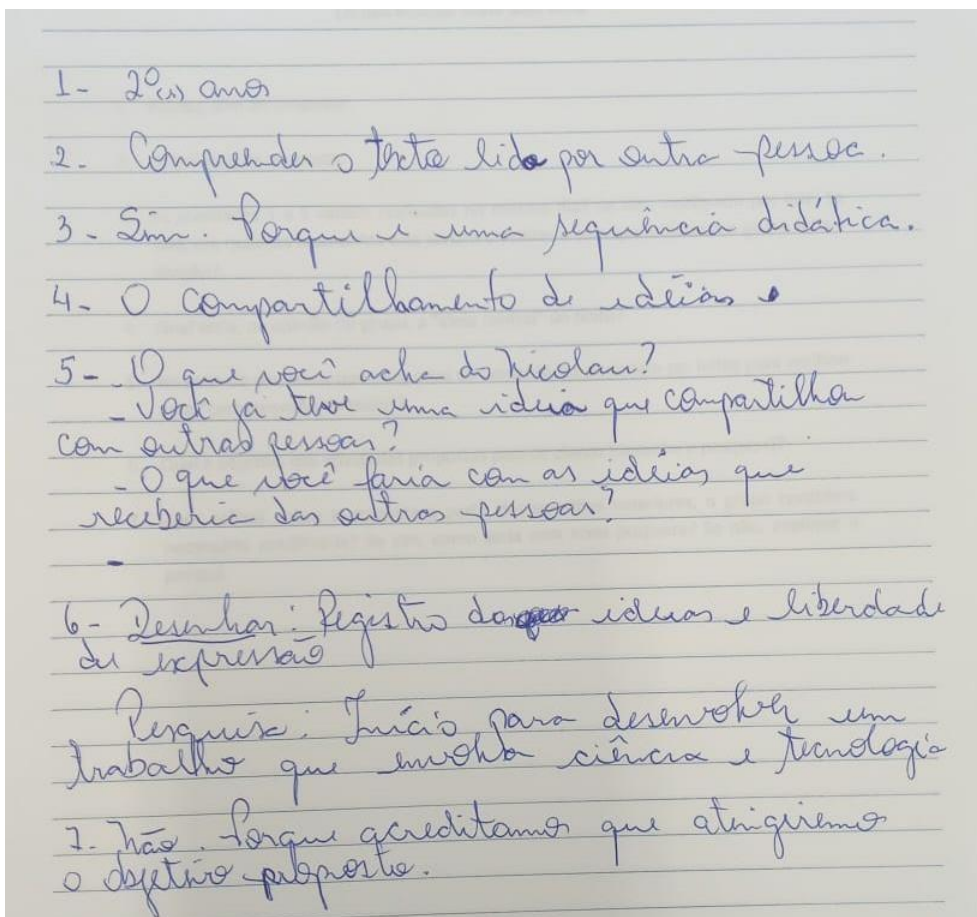 1- 2º(s) anos
2- Compreender o texto lido por outra pessoa.
3- Sim. Porque é uma sequência didática.
4- O compartilhamento de idéias
5- - O que você acha do Nicolau?
- Você já teve uma ideia que compartilhou
com outras pessoas?
- O que você faria com as idéias que
receberia das outras pessoas?
-
6- Desenhar: Registro das ideias e liberdade
de expressão
Pesquisa: Início para desenvolver um
trabalho que envolva ciência e tecnologia
7- Não. Porque acreditamos que atingiremos
o objetivo proposto.